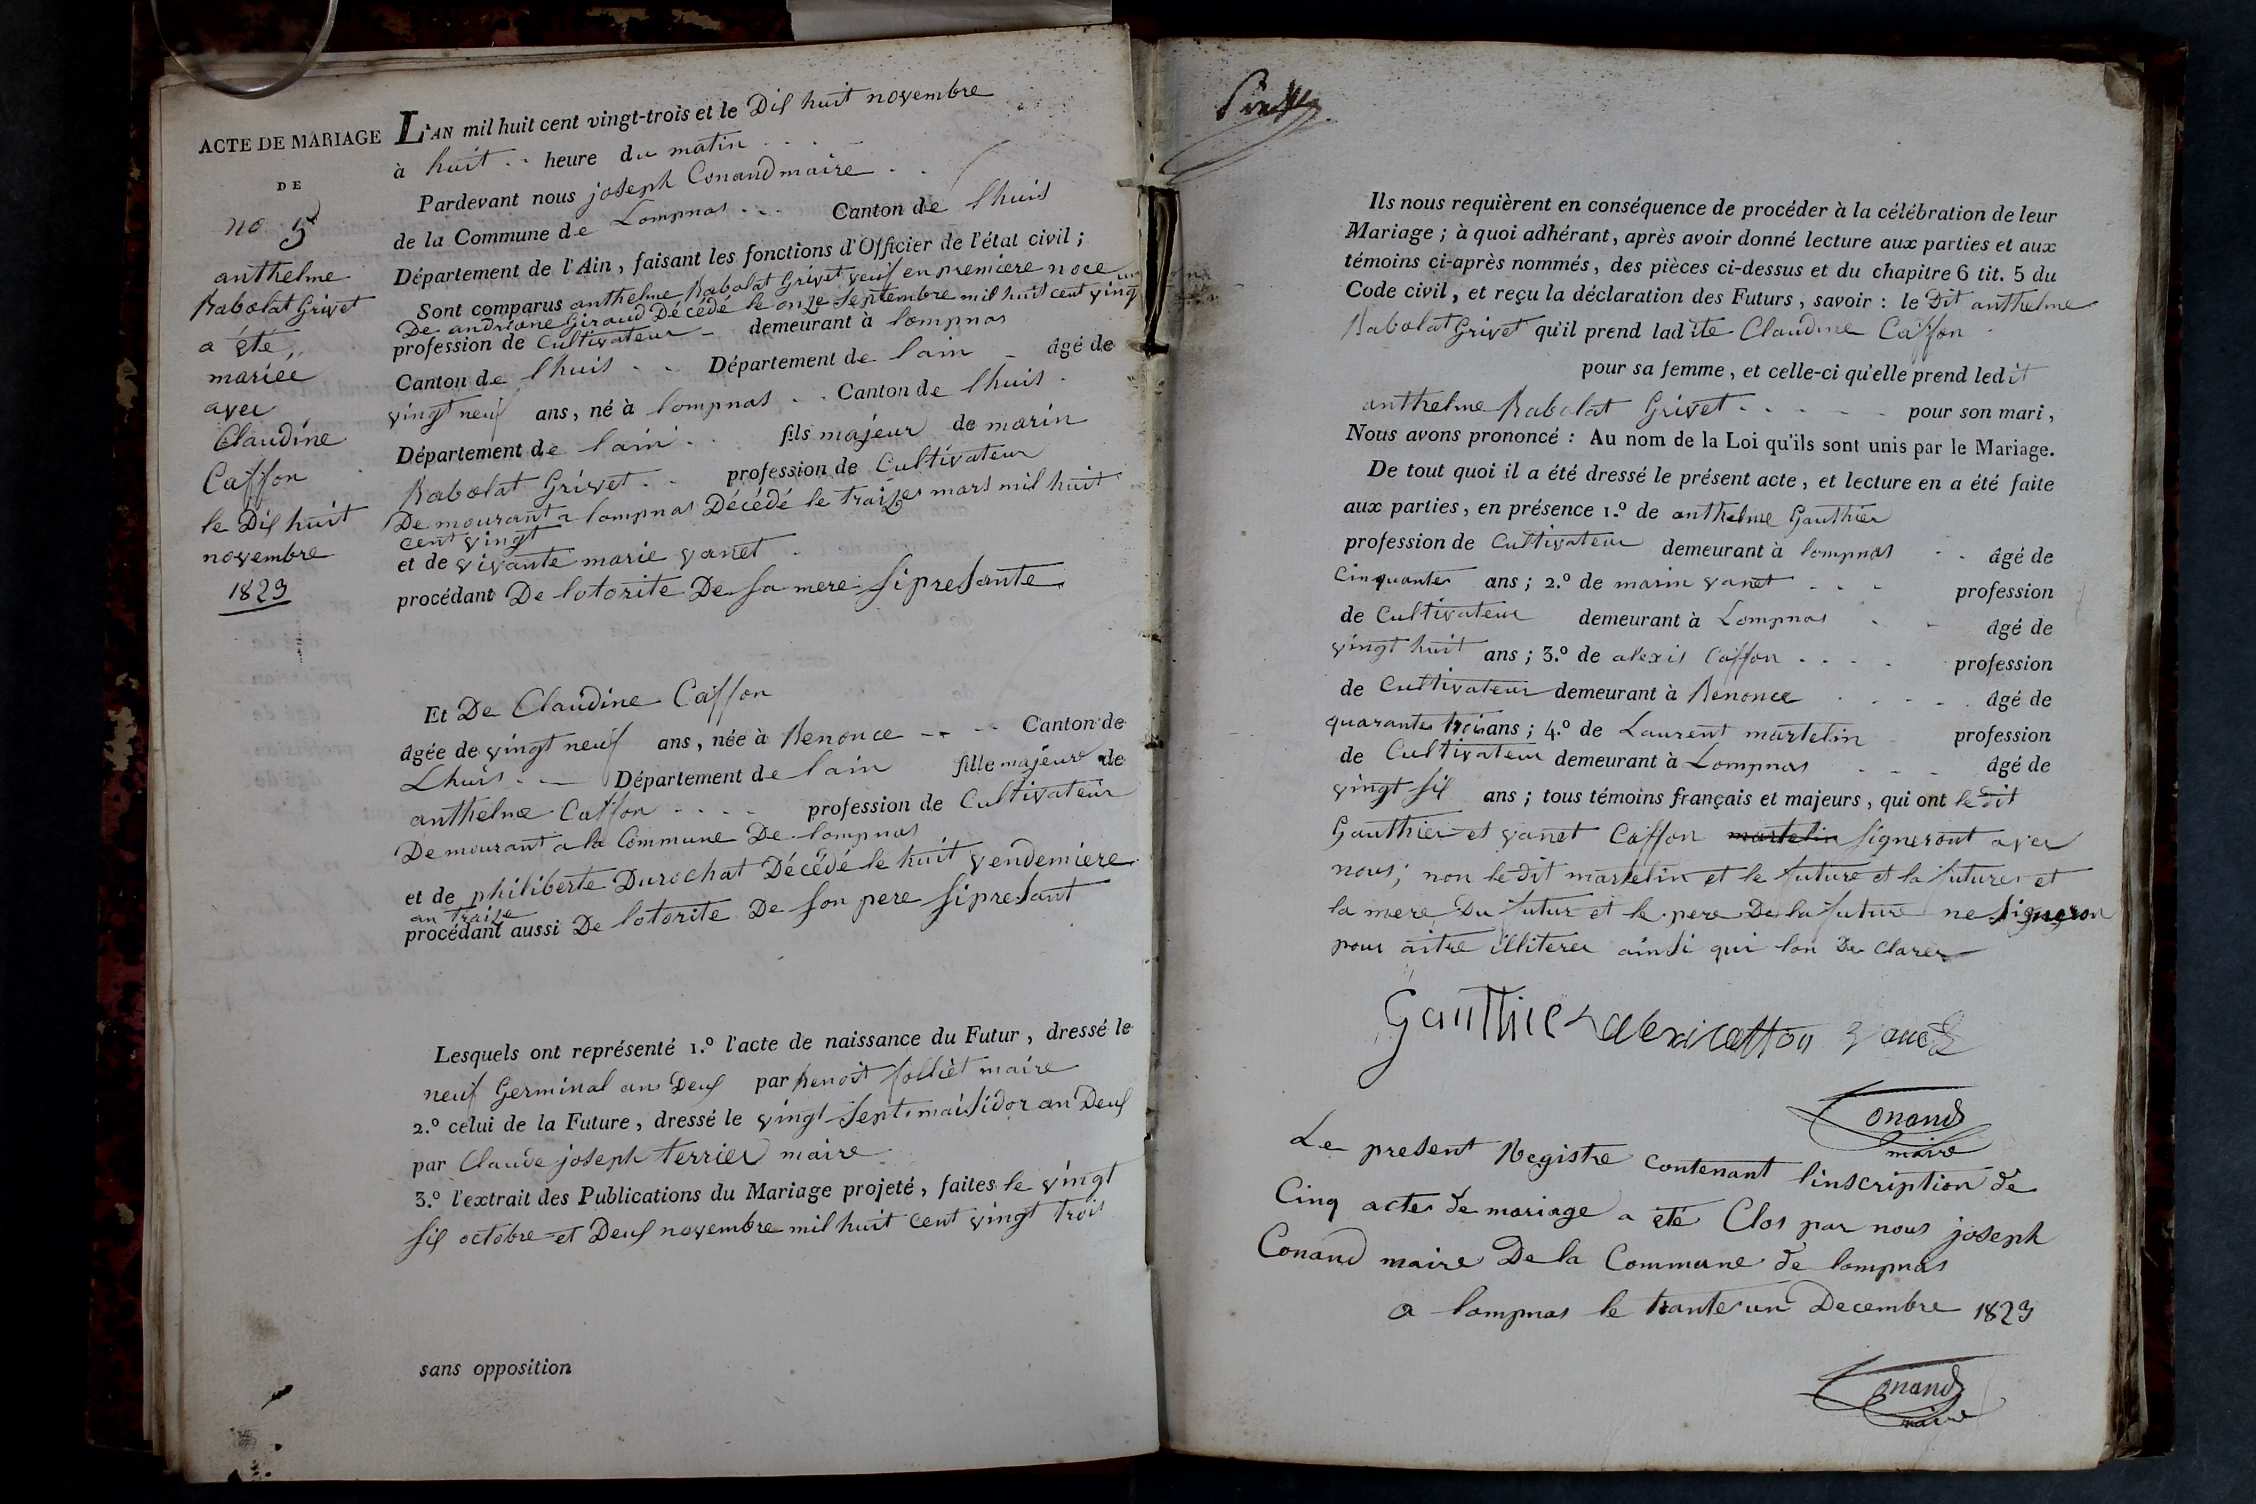 ACTE DE MARIAGE
DE
no 5
anthelme
Rabolat Grivet
a été
mariee
avec
Claudine
Caffon
le Dix huit
novembre
1823
L'AN mil huit cent vingt-trois et le Dix huit novembre
à huit heure du matin
Pardevant nous joseph Conand maire
de la Commune de Lompnas Canton de lhuis
Département de l'Ain, faisant les fonctions d'Officier de l'état civil;
Sont comparus anthelme Rabolat Grivet veuf en premiere noce
De andriane Giraud Décédé le onze Septembre mil huit cent ving
profession de Cultivateur demeurant à lompnas
Canton de lhuis Département de lain âgé de
vingt neuf ans, né à lompnas Canton de lhuis
Département de lain fils majeur de marin
Rabolat Grivet profession de Cultivateur
De mourant a lompnas Décédé le traize mars mil huit
cent vingt
et de vivante marie vanet
procédant De lotorite De sa mere si presante
Et De Claudine Caffon
âgée de vingt neuf ans, née à Benonce Canton de
Lhuis Département de lain fille majeure de
anthelme Caffon profession de Cultivateur
De mourant a la Commune De lompnas
et de philiberte Durochat Décédé le huit vendemiere
an traize
procédant aussi De lotorite De son pere si presant
Lesquels ont représenté 1.º l'acte de naissance du Futur, dressé le
neuf Germinal an Deux par benoit folliet maire
2.º celui de la Future, dressé le vingt Sept maisidor an Deux
par Claude joseph terrier maire
3.º l'extrait des Publications du Mariage projeté, faites le vingt
six octobre et Deux novembre mil huit cent vingt trois
sans opposition
Ils nous requièrent en conséquence de procéder à la célébration de leur
Mariage; à quoi adhérant, après avoir donné lecture aux parties et aux
témoins ci-après nommés, des pièces ci-dessus et du chapitre 6 tit. 5 du
Code civil, et reçu la déclaration des Futurs, savoir: le Dit anthelme
Rabolat Grivet qu'il prend ladite Claudine Caffon
pour sa femme, et celle-ci qu'elle prend ledit
anthelme Rabolat Grivet pour son mari,
Nous avons prononcé: Au nom de la Loi qu'ils sont unis par le Mariage.
De tout quoi il a été dressé le présent acte, et lecture en a été faite
aux parties, en présence 1.º de anthelme Gauthier
profession de Cultivateur demeurant à lompnas âgé de
Cinquante ans; 2.º de marin vanet profession
de Cultivateur demeurant à Lompnas âgé de
vingt huit ans; 3.º de alexis Caffon profession
de Cultivateur demeurant à Benonce âgé de
quarante trois ans; 4.º de Laurent martelin profession
de Cultivateur demeurant à Lompnas âgé de
vingt six ans; tous témoins français et majeurs, qui ont le dit
Gauthier et vanet Caffon martelin signeront avec
nous; non le dit martelin et le future et la future et
la mere Du futur et le pere De la future ne signeron
pour aitre illiterer ainsi qui lon De clarer
Gauthier alexi caffon vanet
Conand
maire
Le present Registre contenant linscription de
Cinq acte de mariage a eté Clos par nous joseph
Conand maire De la Commune de lompnas
a lompnas le trante un Decembre 1823
Conand
maire